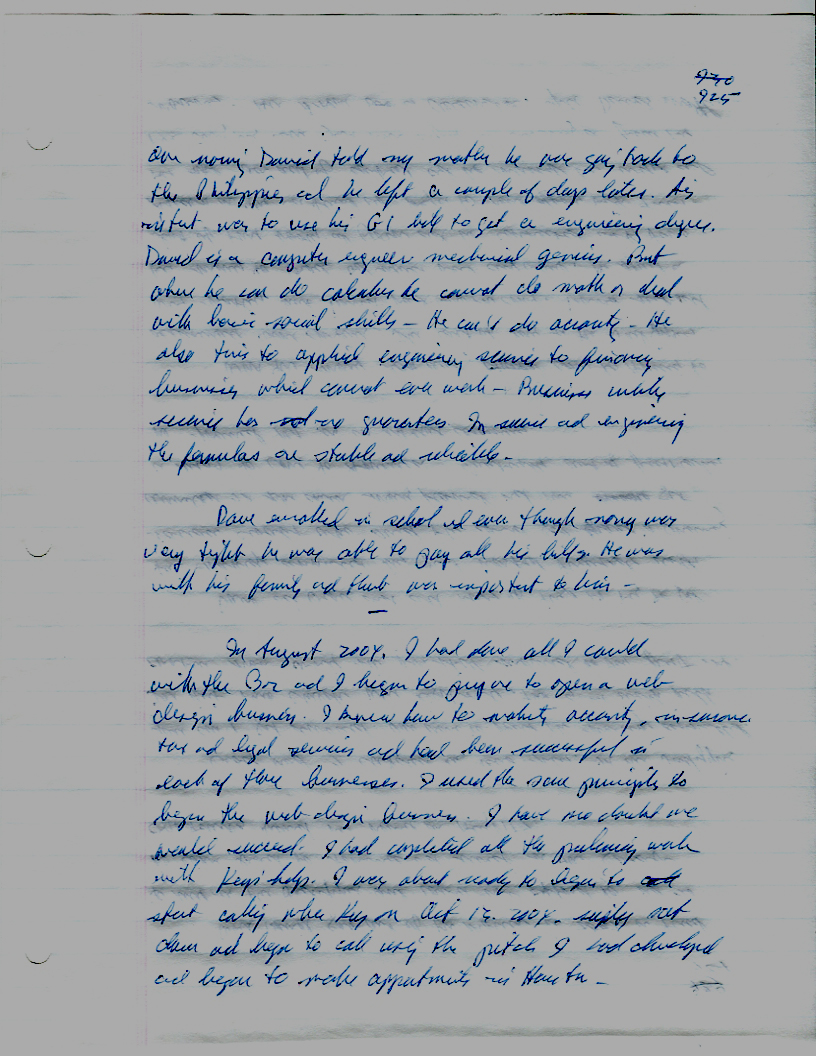 930
925
One morning David told my mother he was going back to
the Philippines and he left a couple of days later. His
intent was to use his GI bill to get a engineering degree.
David is a computer engineer mechanical genius. But
where he can do calculus he cannot do math or deal
with basic social skills - He can't do accounting - He
also tries to applied engineering science to financing
businesses which cannot ever work - Business
science has not no guarantees. In science and engineering
the formulas are stable and reliable -
Dave enrolled in school and even though money was
very tight he was able to pay all his bills. He was
with his family and that was important to him -
In August 2004. I had done all I could
with the and I began to prepare to open a web
design business. I knew how to market accounting, insurance
tax and legal services and had been successful in
each of these businesses. I used the same principles to
begin the web design business. I have no doubt we
would succeed. I had completed all the preliminary work
with Kay's help. I was about ready to begin to call
start calling when Kay on Oct 15. 2004. simply sat
down and began to call using the pitch I had developed
and began to make appointments in Houston -